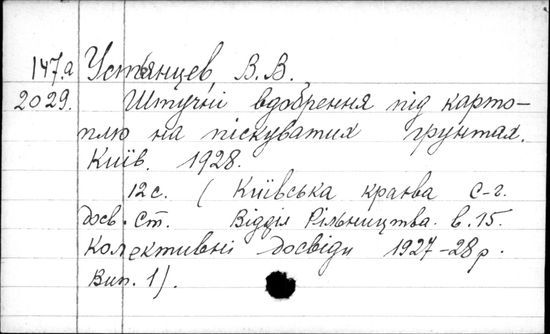 147.а Устьянцев, В. В.
2029. Штучні вдобрення під карто-
плю на піскуватих грунтах.
Київ. 1928.
12 с. (Київська краєва с-г.
досв. ст. Відділ Рільництва. в. 15.
Колективні досвіди 1927-28 р.
Вип. 1).